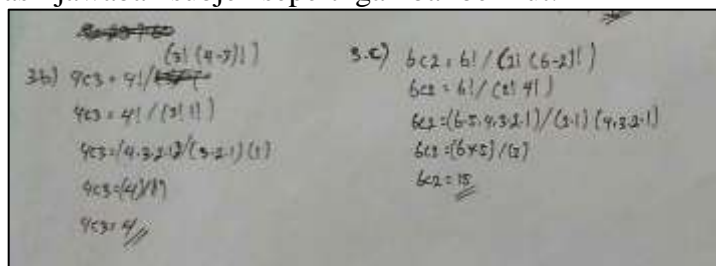 (3! (4-3)!)
3b) 4C3 = 4! /
4C3 = 4! / (3! 1!)
4C3 = (4.3.2.1)/(3.2.1)(1)
4C3 = (4)/(1)
4C3 = 4
3.c) 6C2 = 6! / (2! (6-2)! )
6C2 = 6! / (2! 4! )
6C2 = (6.5.4.3.2.1)/(2.1) (4.3.2.1)
6C2 = (6×5) / (2)
6C2 = 15